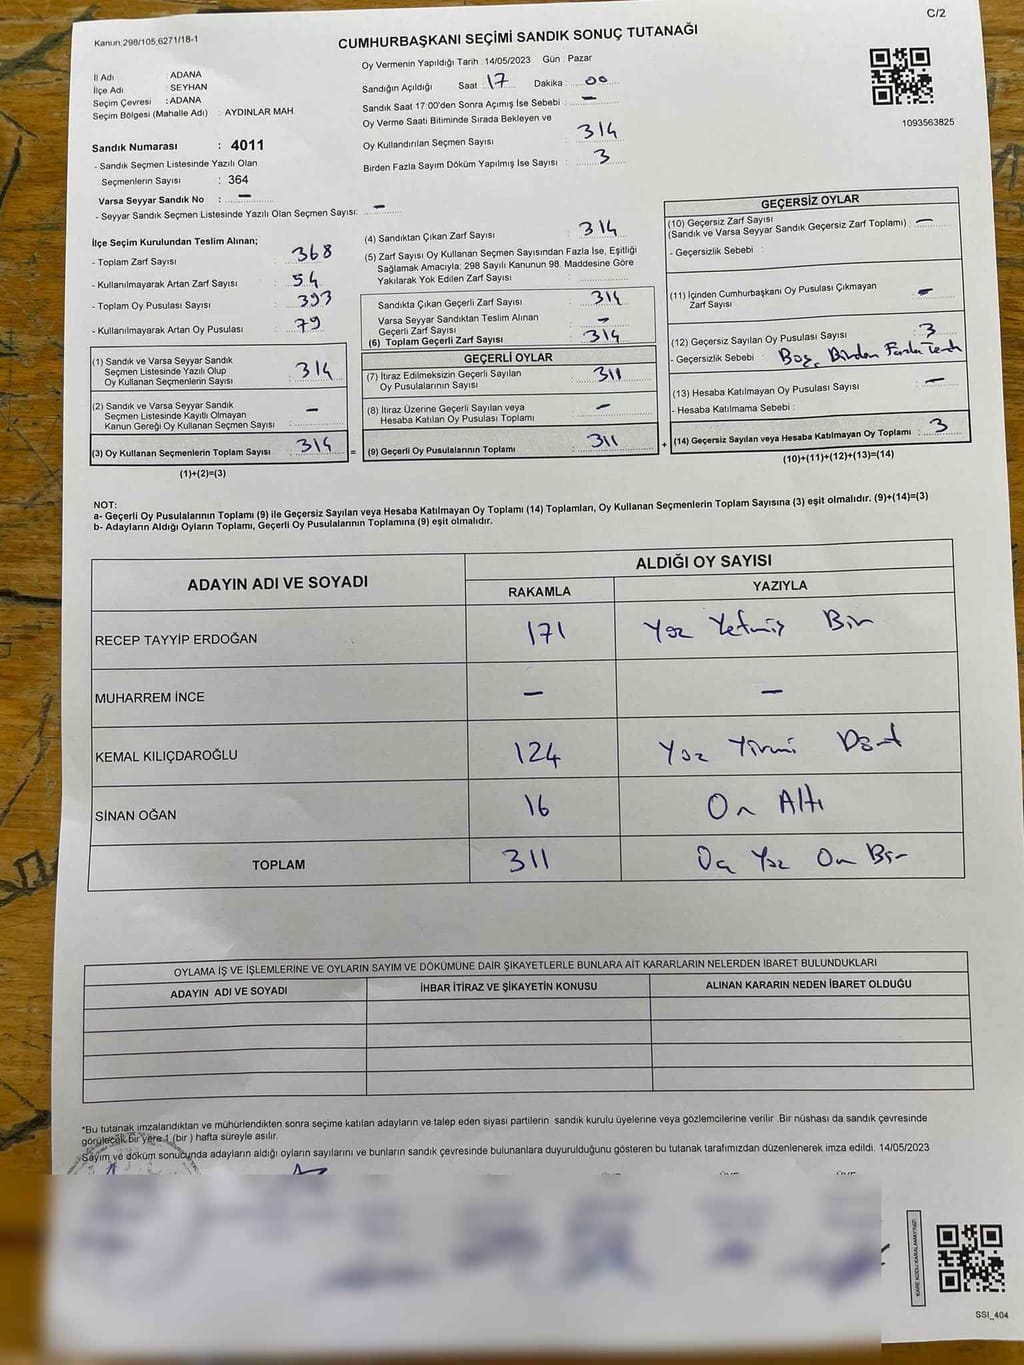 C/2
Kanun:298/105,6271/18-1
CUMHURBAŞKANI SEÇİMİ SANDIK SONUÇ TUTANAĞI
İl Adı : ADANA
İlçe Adı : SEYHAN
Seçim Çevresi : ADANA
Seçim Bölgesi (Mahalle Adı) : AYDINLAR MAH.
Sandık Numarası : 4011
- Sandık Seçmen Listesinde Yazılı Olan
Seçmenlerin Sayısı : 364
Varsa Seyyar Sandık No : -
- Seyyar Sandık Seçmen Listesinde Yazılı Olan Seçmen Sayısı: -
Oy Vermenin Yapıldığı Tarih : 14/05/2023 Gün : Pazar
Sandığın Açıldığı Saat : 17 Dakika : 00
Sandık Saat 17:00'den Sonra Açımış İse Sebebi : -
Oy Verme Saati Bitiminde Sırada Bekleyen ve
Oy Kullandırılan Seçmen Sayısı : 314
Birden Fazla Sayım Döküm Yapılmış İse Sayısı : 3
1093563825
İlçe Seçim Kurulundan Teslim Alınan;
- Toplam Zarf Sayısı : 368
- Kullanılmayarak Artan Zarf Sayısı : 54
- Toplam Oy Pusulası Sayısı : 393
- Kullanılmayarak Artan Oy Pusulası : 79
(1) Sandık ve Varsa Seyyar Sandık
Seçmen Listesinde Yazılı Olup
Oy Kullanan Seçmenlerin Sayısı : 314
(2) Sandık ve Varsa Seyyar Sandık
Seçmen Listesinde Kayıtlı Olmayan
Kanun Gereği Oy Kullanan Seçmen Sayısı : -
(3) Oy Kullanan Seçmenlerin Toplam Sayısı : 314
(1)+(2)=(3)
=
(4) Sandıktan Çıkan Zarf Sayısı : 314
(5) Zarf Sayısı Oy Kullanan Seçmen Sayısından Fazla İse, Eşitliği
Sağlamak Amacıyla; 298 Sayılı Kanunun 98. Maddesine Göre
Yakılarak Yok Edilen Zarf Sayısı :
Sandıkta Çıkan Geçerli Zarf Sayısı : 314
Varsa Seyyar Sandıktan Teslim Alınan
Geçerli Zarf Sayısı : -
(6) Toplam Geçerli Zarf Sayısı : 314
GEÇERLİ OYLAR
(7) İtiraz Edilmeksizin Geçerli Sayılan
Oy Pusulalarının Sayısı : 311
(8) İtiraz Üzerine Geçerli Sayılan veya
Hesaba Katılan Oy Pusulası Toplamı : -
(9) Geçerli Oy Pusulalarının Toplamı : 311
+
GEÇERSİZ OYLAR
(10) Geçersiz Zarf Sayısı
(Sandık ve Varsa Seyyar Sandık Geçersiz Zarf Toplamı) : -
- Geçersizlik Sebebi :
(11) İçinden Cumhurbaşkanı Oy Pusulası Çıkmayan
Zarf Sayısı : -
(12) Geçersiz Sayılan Oy Pusulası Sayısı : 3
- Geçersizlik Sebebi : Boş, Birden Fazla
(13) Hesaba Katılmayan Oy Pusulası Sayısı : -
- Hesaba Katılmama Sebebi :
(14) Geçersiz Sayılan veya Hesaba Katılmayan Oy Toplamı : 3
(10)+(11)+(12)+(13)=(14)
NOT:
a- Geçerli Oy Pusulalarının Toplamı (9) ile Geçersiz Sayılan veya Hesaba Katılmayan Oy Toplamı (14) Toplamları, Oy Kullanan Seçmenlerin Toplam Sayısına (3) eşit olmalıdır. (9)+(14)=(3)
b- Adayların Aldığı Oyların Toplamı, Geçerli Oy Pusulalarının Toplamına (9) eşit olmalıdır.
ADAYIN ADI VE SOYADI
ALDIĞI OY SAYISI
RAKAMLA YAZIYLA
RECEP TAYYİP ERDOĞAN 171 Yüz Yetmiş Bir
MUHARREM İNCE - -
KEMAL KILIÇDAROĞLU 124 Yüz Yirmi Dört
SİNAN OĞAN 16 On Altı
TOPLAM 311 Üç Yüz On Bir
OYLAMA İŞ VE İŞLEMLERİNE VE OYLARIN SAYIM VE DÖKÜMÜNE DAİR ŞİKAYETLERLE BUNLARA AİT KARARLARIN NELERDEN İBARET BULUNDUKLARI
ADAYIN ADI VE SOYADI İHBAR İTİRAZ VE ŞİKAYETİN KONUSU ALINAN KARARIN NEDEN İBARET OLDUĞU
*Bu tutanak imzalandıktan ve mühürlendikten sonra seçime katılan adayların ve talep eden siyasi partilerin sandık kurulu üyelerine veya gözlemcilerine verilir .Bir nüshası da sandık çevresinde
görülecek bir yere 1 (bir ) hafta süreyle asılır.
Sayım ve döküm sonucunda adayların aldığı oyların sayılarını ve bunların sandık çevresinde bulunanlara duyurulduğunu gösteren bu tutanak tarafımızdan düzenlenerek imza edildi. 14/05/2023
KARE KODU KARALAMAYINIZ!
SSI_404